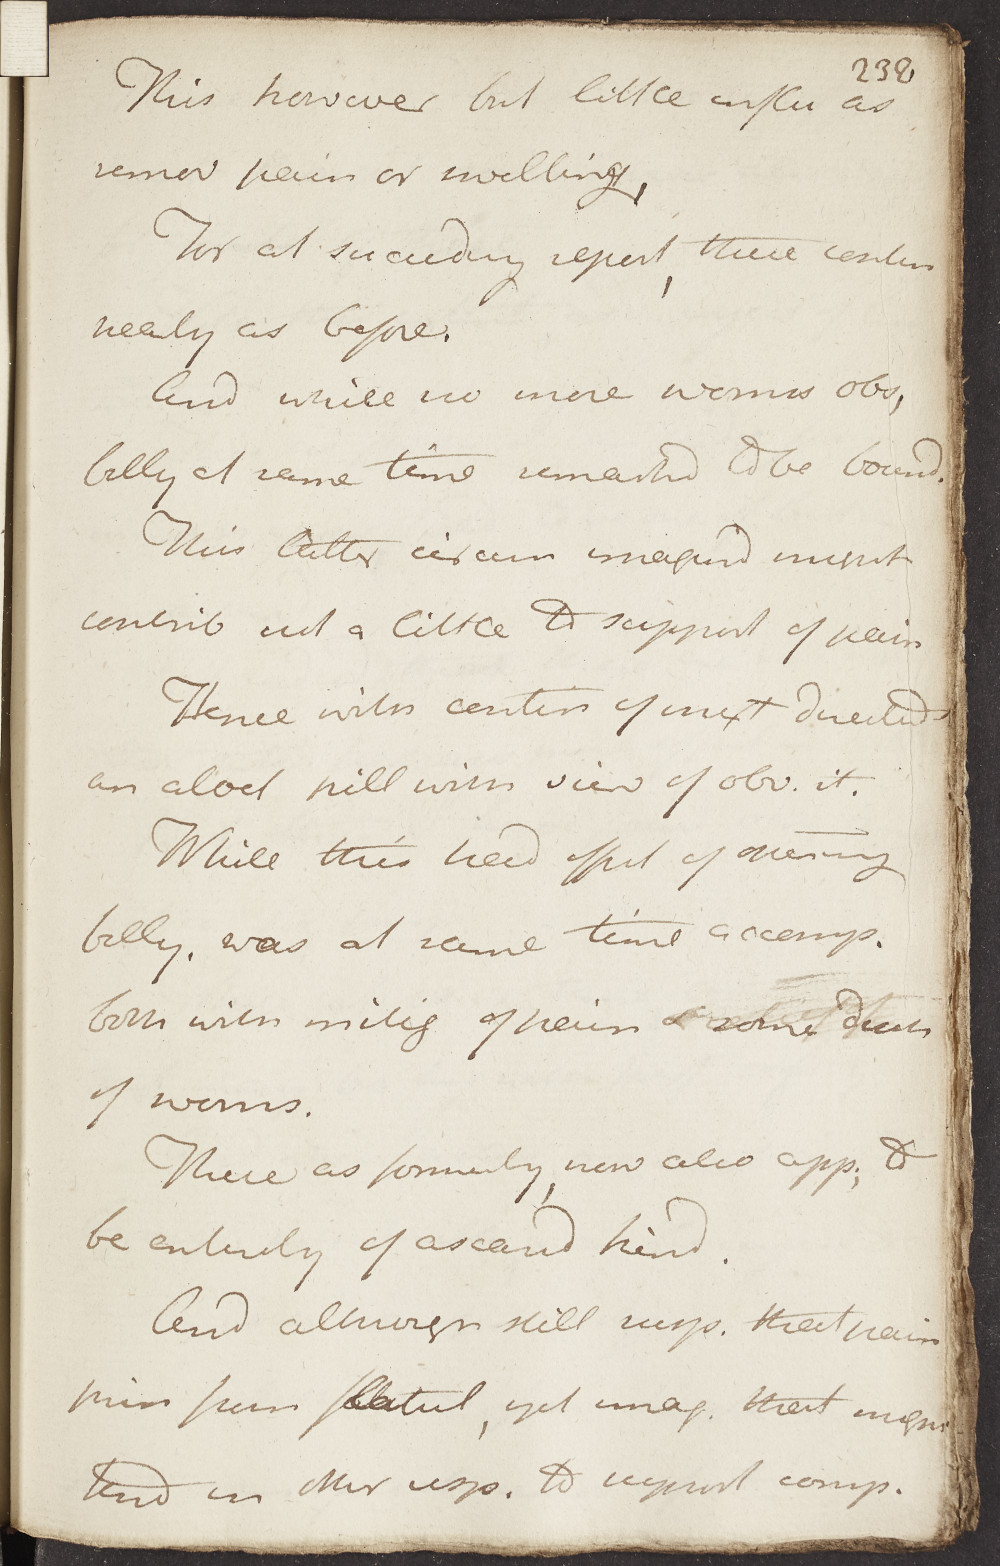 238
This however but little influ as
remov pain or swelling,
For at succeeding report, there contin
nearly as before.
And while no more worms obs,
belly at same time remarkd to be bound.
This latter circum imagind might
contrib not a little to support of pain
Hence with contin of mixt directed
an aloet pill with view of obv. it.
While this had effect of opening
belly, was at same time accomp.
both with mitig of pain & some disch
of worms.
These as formerly, now also app, to
be entirely of ascarid kind.
And although still susp. that pain
prin from flatul, yet imag. that might
tend in other resp. to support comp.